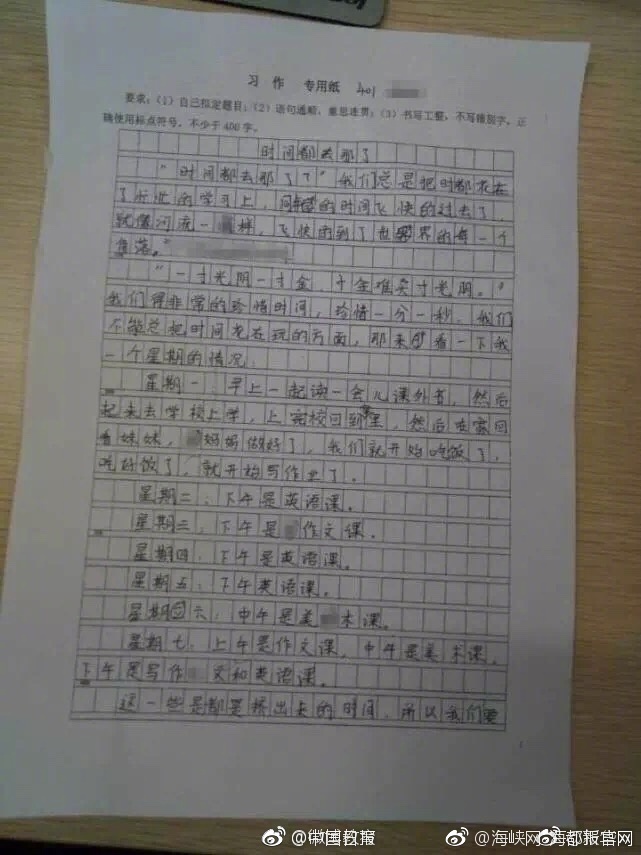 习 作 专用纸 401
要求：（1）自己拟定题目；（2）语句通顺，意思连贯；（3）书写工整，不写错别字，正
确使用标点符号。不少于400字。
时间都去那了
“时间都去那了？”我们总是把时都花在
了 的学习上， 的时间飞快的过去了，
就像河流一 样，飞快的到了世 界的每一个
角落。”
“一寸光阴一寸金，寸金难卖寸光阴。”
我们得非常的珍惜时间，珍惜一分一秒，我们
不能总把时间花在玩的方面，那来 看一下我
一个星期的情况：
星期一：早上一起读一会儿课外书，然后
起来去学校上学，上完校回到家里，然后在家回
看妹妹， 妈妈做好了，我们就开始吃饭了，
吃好饭了，就开始写作业了。
星期二：下午是英语课。
星期三：下午是 作文课。
星期四：下午是英语课。
星期五：下午英语课。
星期 六：中午是美 术课。
星期七：上午是作文课，中午是美术课。
下午是写作 文和英语课。
这一些是都是挤出来的时间，所以我们要
1
@中国教育报
@海峡网
@海都报官网